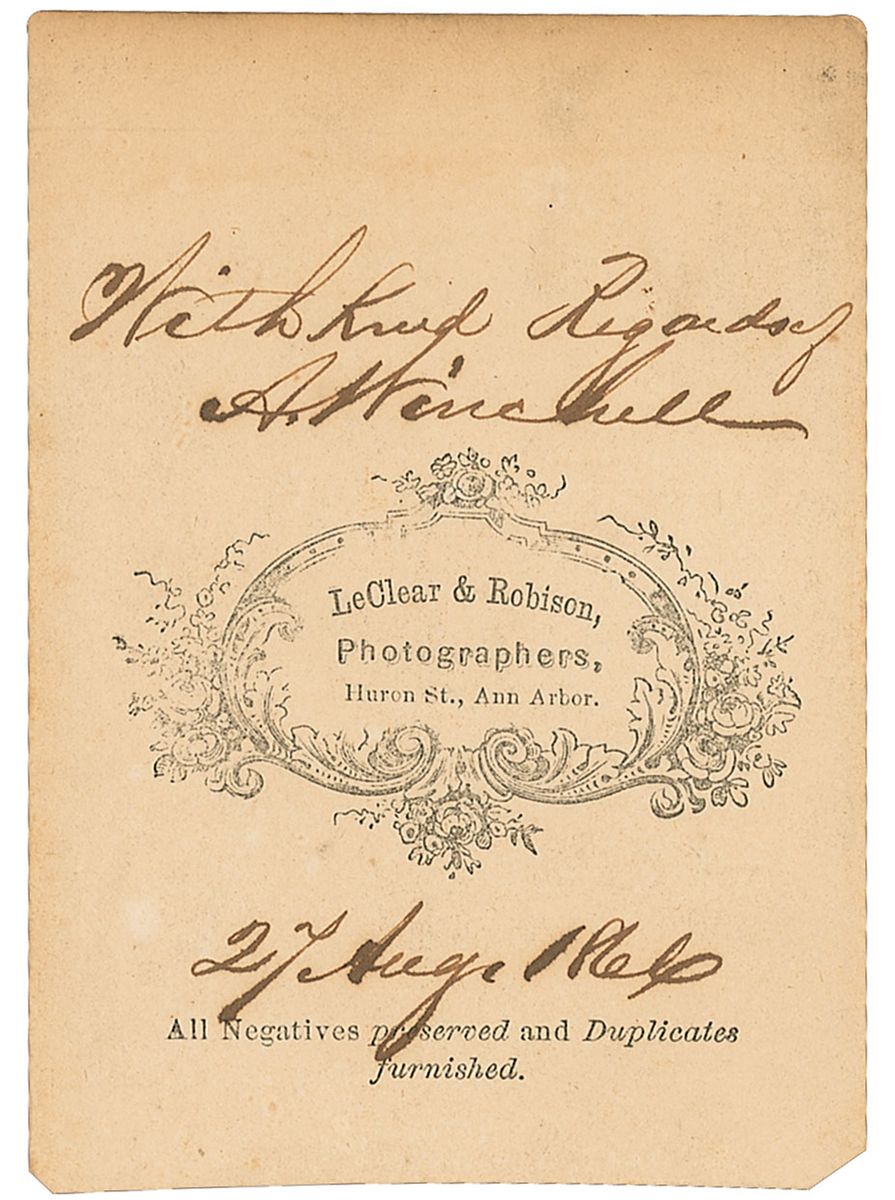 With Kind Regards of
A. Winchell
LeClear & Robison,
Photographers,
Huron St., Ann Arbor.
27 Aug. 1866
All Negatives preserved and Duplicates
furnished.